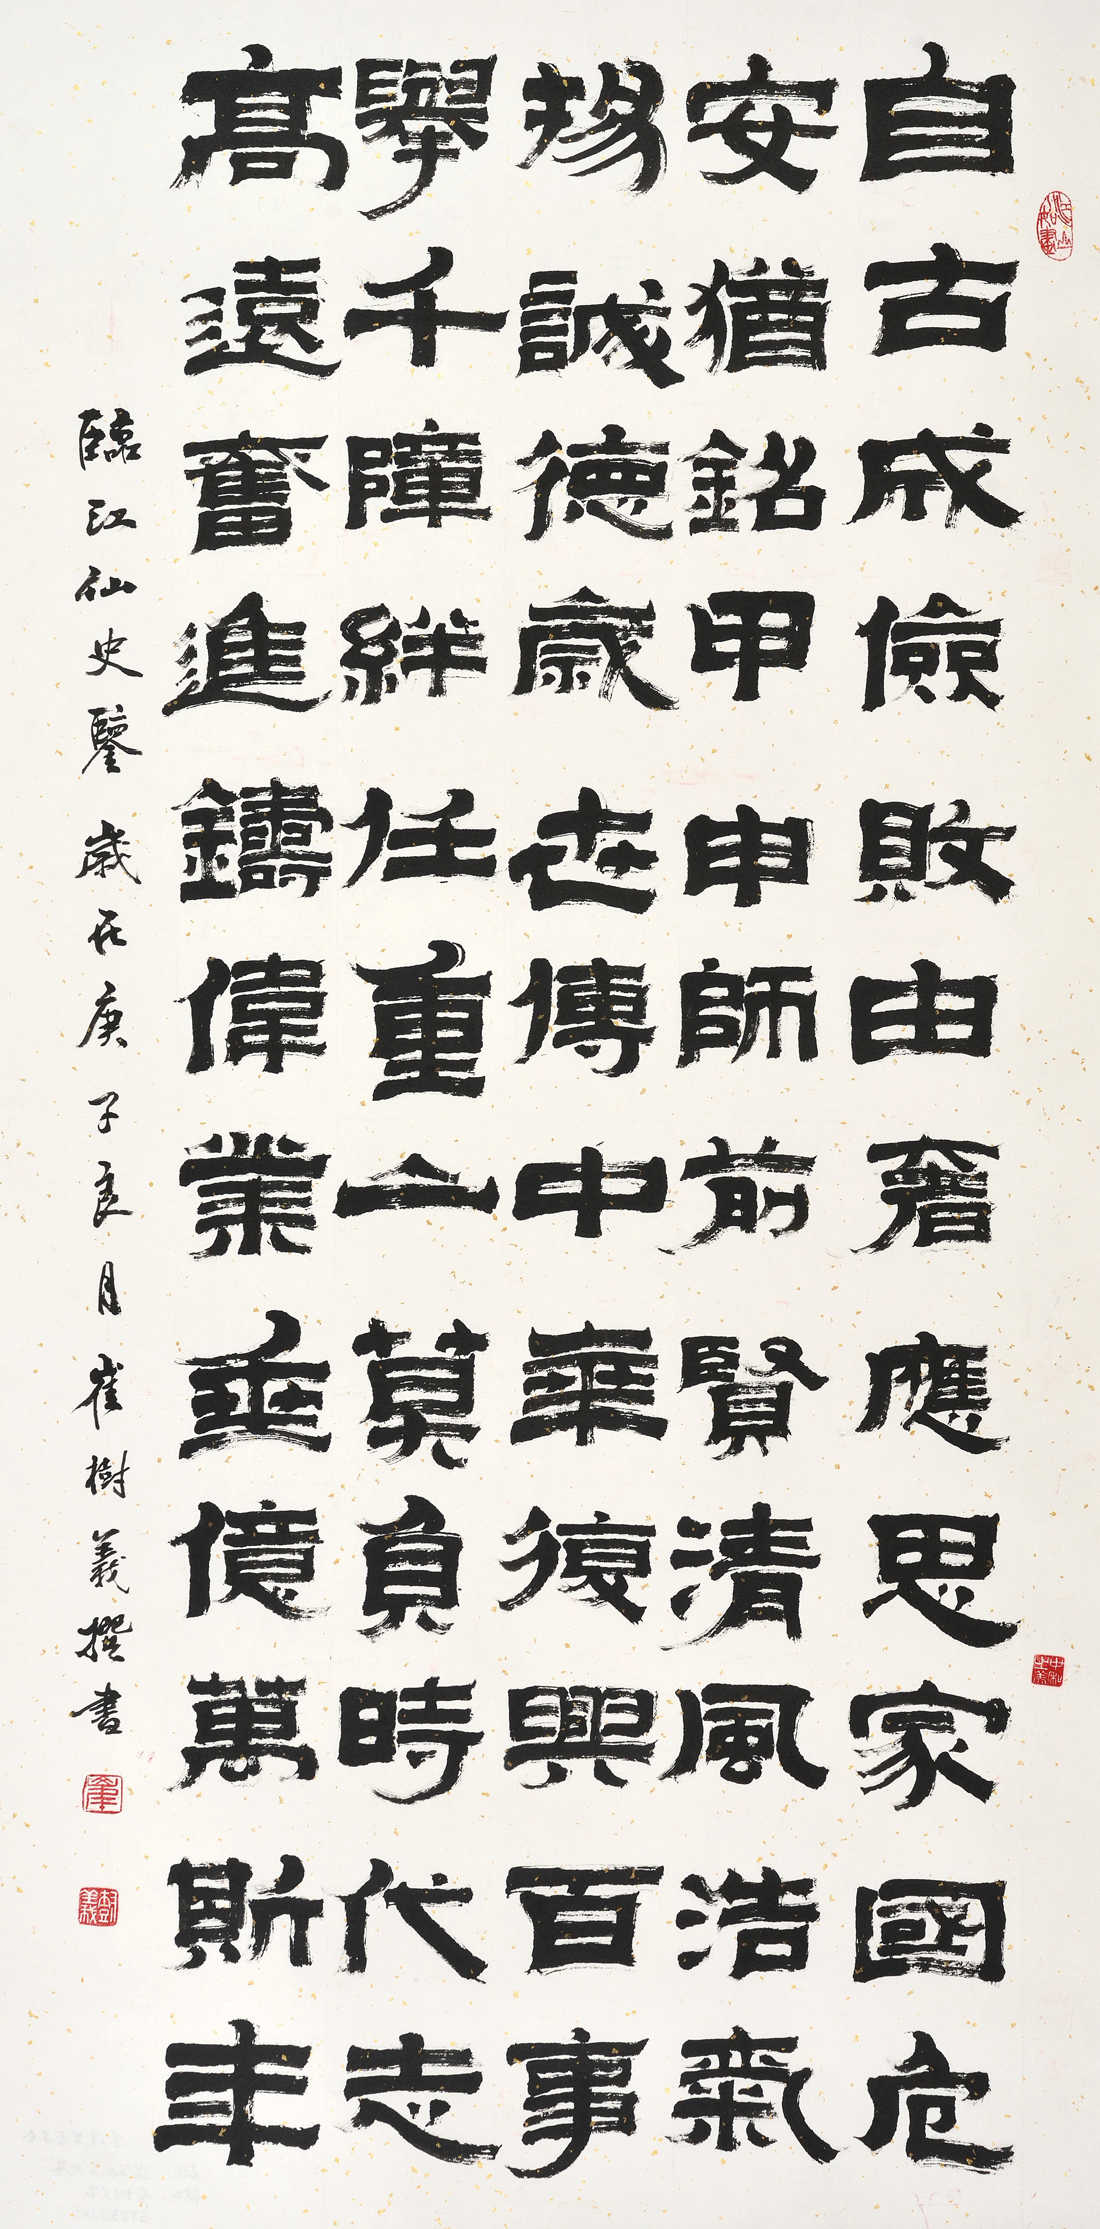 自古成儉敗由奢應思家國危
安猶銘甲申師前賢清風浩氣
揚誠德歲世傳中華復興百事
舉千障絆任重山莫負時代志
高遠奮進鑄偉業垂億萬斯年
臨江仙史鑒歲在庚子良月崔樹義撰書
江山如畫
中和之美
崔
樹義